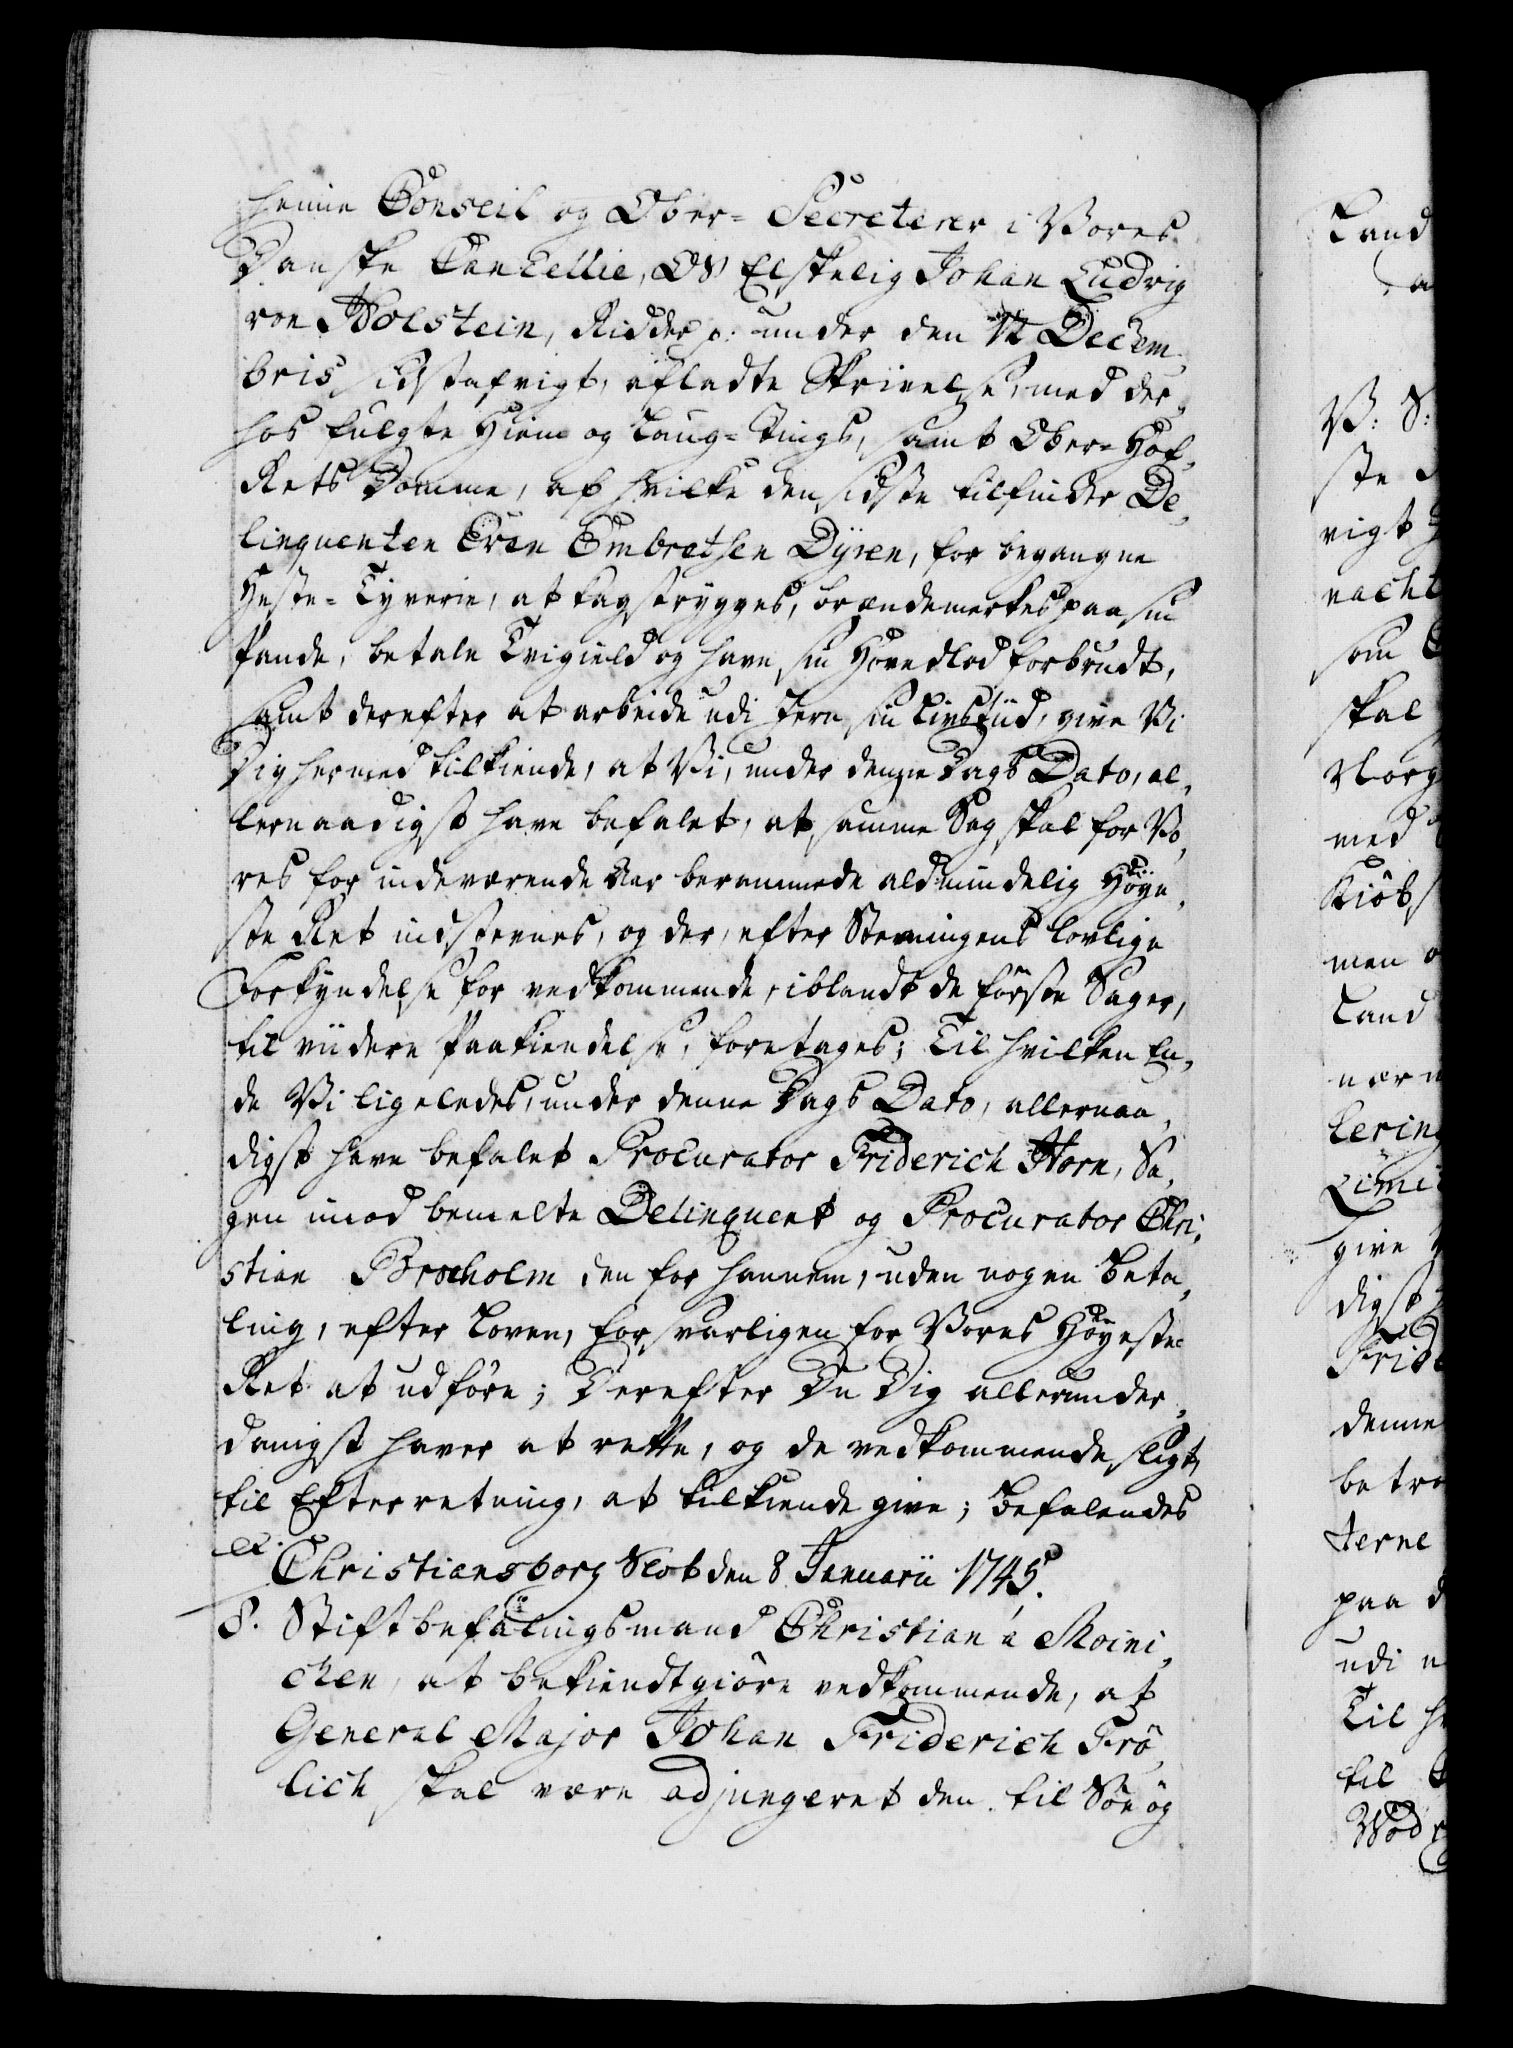 heime Conseil og Ober-Secreterer i Vores
Danske Cancellie, OS Elskelig Johan Ludvig
von Holstein, Ridder p: under den 12 Decem-
bris sidstafvigt, afladte Skrivelse, med der-
hos fulgte Hiem og Laug-Tings, samt Ober-Hof-
Rets Domme, af hvilke den sidste tilfinder De-
linquenten Even Embretsen Dyren, for begangne
Heste-Tyverie, at kagstryges, brændemerkes paa sin
Pande, betale Tvigield og have sin Hovedlod forbrudt,
samt derefter at arbeide udi Jern sin Livstiid, give Vi
Dig hermed tilkiende, at Vi, under denne Dags Dato, al-
lernaadigst have befalet, at samme Sag skal for Vo-
res for indeværende Aar berammede aldmindelig Høye-
ste Ret indstevnes, og der, efter Stevningens lovlige
Forkyndelse for vedkommende, iblandt de første Sager,
til viidere Paakiendelse, foretages; Til hvilken En-
de Vi ligeledes, under denne Dags Dato, allernaa-
digst have befalet Procurator Friderich Horn, Sa-
gen imod bemelte Delinquent og Procurator Chri-
stian Brocholm den for hannem, uden nogen Beta-
ling, efter Loven, forsvarligen for Vores Høyeste
Ret at udføre; Derefter Du Dig allerunder-
danigst haver at rette, og de vedkommende sligt
til Efterretning, at tilkiende give; Befalendes
etc. Christiansborg Slot den 8 Januarii 1745.
S. Stiftbefalingsmand Christian á Moini-
chen, at bekiendtgiøre vedkommende, at
General Major Johan Friderich Frø-
lich skal være adjungeret den til Søe og
Land
V: S:
ste
vigt
nacht
som
skal
Norg
med
Kiøbs
men
Land
nær
lering
Limi
give
digst
Frid
denne
betro
terne
paa d
udi
Til h
til
Mod